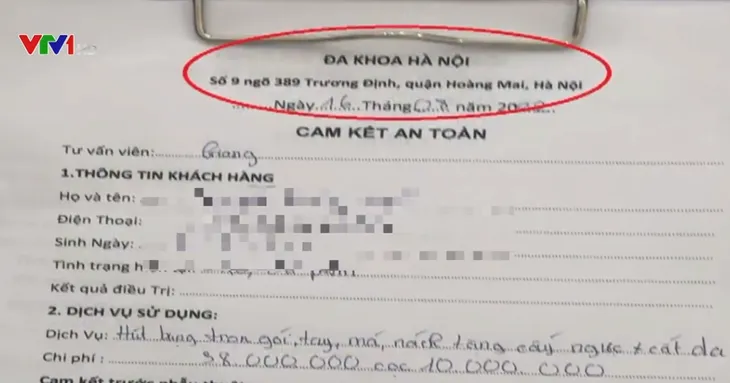 VTV1
ĐA KHOA HÀ NỘI
Số 9 ngõ 389 Trương Định, quận Hoàng Mai, Hà Nội
Ngày 16 Tháng năm
CAM KẾT AN TOÀN
Tư vấn viên: Giang
1.THÔNG TIN KHÁCH HÀNG
Họ và tên:
Điện Thoại:
Sinh Ngày:
Tình trạng
Kết quả điều Trị:
2. DỊCH VỤ SỬ DỤNG:
Dịch Vụ: Hút bụng trọn gói, tay, má, nách tặng cấy ngực + cắt da
Chi phí : 58.000.000 cọc 10.000.000
Cam kết trước phẫu